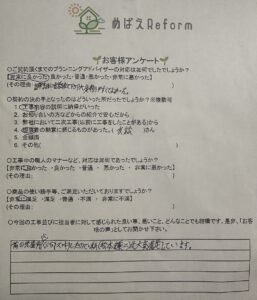 めばえReform
お客様アンケート
○ご契約頂くまでのプランニングアドバイザーの対応は如何でしたでしょうか?
非常に良かった・良かった・普通・悪かった・非常に悪かった
(その理由:
○契約の決め手となったのはどういった所だったでしょうか?※複数可
1. 工事内容の説明に納得がいった
2. お知り合いの方などからの紹介で安心だから
3. 弊社において二次工事(以前に工事をしたことがある)から
4. 提案者の熱意に感じるものがあった。(
5. 金額面
6. その他(
○工事中の職人のマナーなど、対応は如何であったでしょうか?
(非常に良かった・良かった・普通・悪かった・非常に悪かった)
(その理由:
○商品の使い勝手等、ご満足いただいておりますでしょうか?
(非常に満足・満足・普通・不満・非常に不満)
(その理由:
○今回の工事並びに担当者に対して感じられた良い事、悪いこと、どんなことでも結構です。是非、「お客様の声」としてお聞かせ下さい。